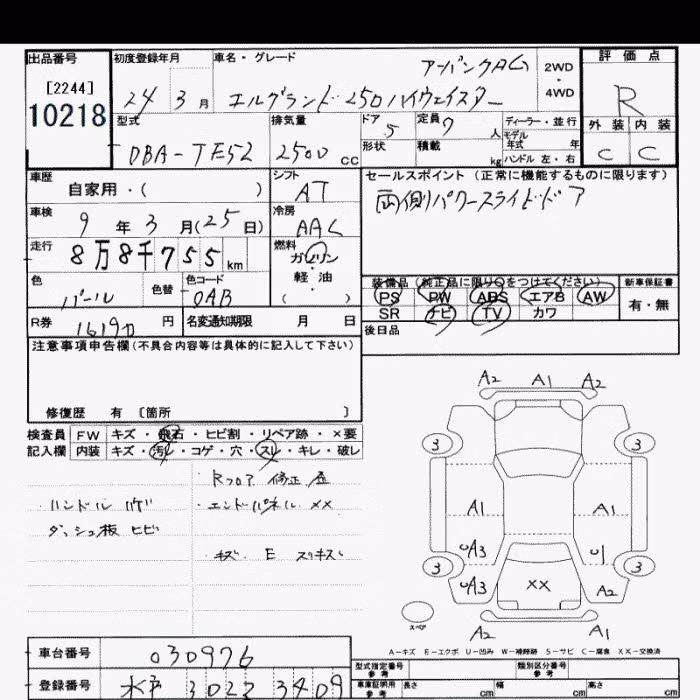 出品番号 初度登録年月 車名・グレード 評価点
[2244] アーバンクロム 2WD・4WD
10218 24 3月 エルグランド 250 ハイウェイスター R
型式 排気量 ドア 5 定員 7人 ディーラー・並行 外装 内装
DBA-TE52 2500cc 形状 積載 kg モデル年式 年 ハンドル 左・右 C C
車歴 シフト セールスポイント (正常に機能するものに限ります)
自家用・( ) AT 両側パワースライドドア
車検 9年3月(25日) 冷房 AAC
走行 8万8千755km 燃料 ガソリン・軽・油 ( )
色 パール 色替 色コード QAB 装備品 (純正品に限り○をつけてください) 新車保証書
PS PW ABS エアB AW 有・無
SR ナビ TV カワ
R券 16190円 名変通知期限 月 日 後日品
注意事項申告欄 (不具合内容等は具体的に記入して下さい)
修復歴 有 〔箇所 〕
検査員 FW キズ・飛石・ヒビ割・リペア跡・×要
記入欄 内装 キズ・汚レ・コゲ・穴・スレ・キレ・破レ
Rフロア 修正歴
ハンドル ハゲ エンドパネル ××
ダッシュ板 ヒビ
キズ E スリキズ
A2 A1 A2
3 3
A1 A1
UA3 U1
3 3
UA3 ×× A2
スペア
A2 A1
A-キズ E-エクボ U-凹み W-補修跡 S-サビ C-腐食 XX-交換済
車台番号 030976 型式指定番号 参考 類別区分番号 参考
登録番号 水戸 302 ろ 3409 車庫証明用 参考 長さ cm 幅 cm 高さ cm